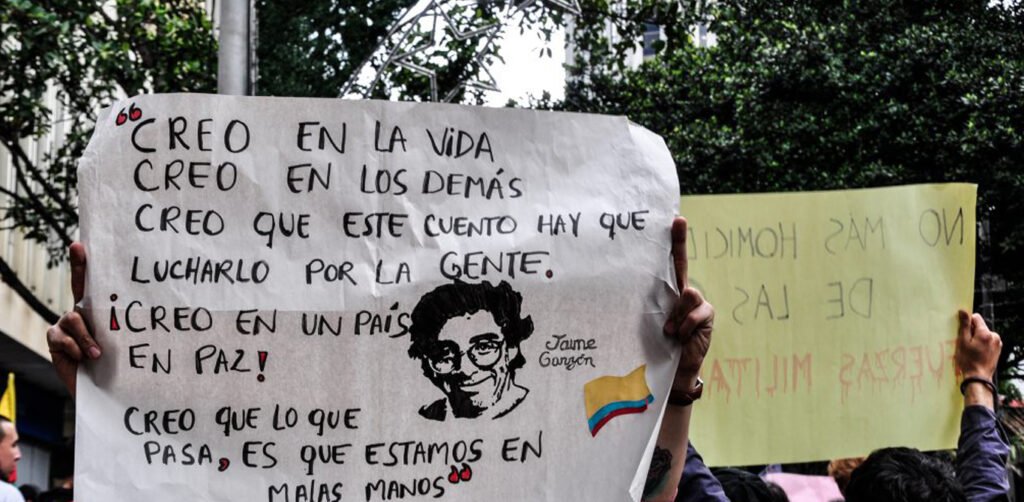 “CREO EN LA ViDA
CREO EN LOS DEMÁS
CREO QUE ESTE CUENTO HAY QUE
LUCHARLO POR LA GENTE.
¡CREO EN UN PAÍS
EN PAZ!
Jaime
Garzón
CREO QUE LO QUE
PASA, ES QUE ESTAMOS EN
MALAS MANOS”
NO MÁS
DE LAS